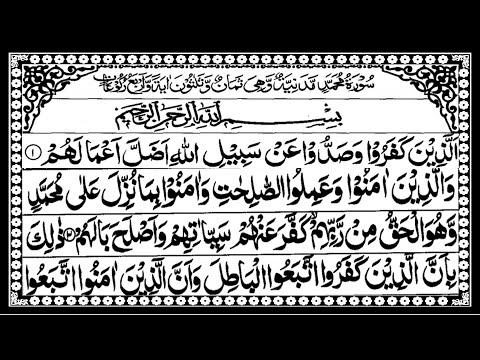 سُوْرَةُ مُحَمَّدٍ مَّدَنِيَّةٌ وَّهِیَ ثَمَانٌ وَّثَلٰثُوْنَ اٰيَةً وَّاَرْبَعُ رُكُوْعَاتٍ
بِسْمِ اللهِ الرَّحْمٰنِ الرَّحِيْمِ
اَلَّذِيْنَ كَفَرُوْا وَصَدُّوْا عَنْ سَبِيْلِ اللهِ اَضَلَّ اَعْمَالَهُمْ ۝۱
وَالَّذِيْنَ اٰمَنُوْا وَعَمِلُوا الصّٰلِحٰتِ وَاٰمَنُوْا بِمَا نُزِّلَ عَلٰى مُحَمَّدٍ
وَّهُوَ الْحَقُّ مِنْ رَّبِّهِمْ ۙ كَفَّرَ عَنْهُمْ سَيِّاٰتِهِمْ وَاَصْلَحَ بَالَهُمْ ۝۲ ذٰلِكَ
بِاَنَّ الَّذِيْنَ كَفَرُوا اتَّبَعُوا الْبَاطِلَ وَاَنَّ الَّذِيْنَ اٰمَنُوا اتَّبَعُوا